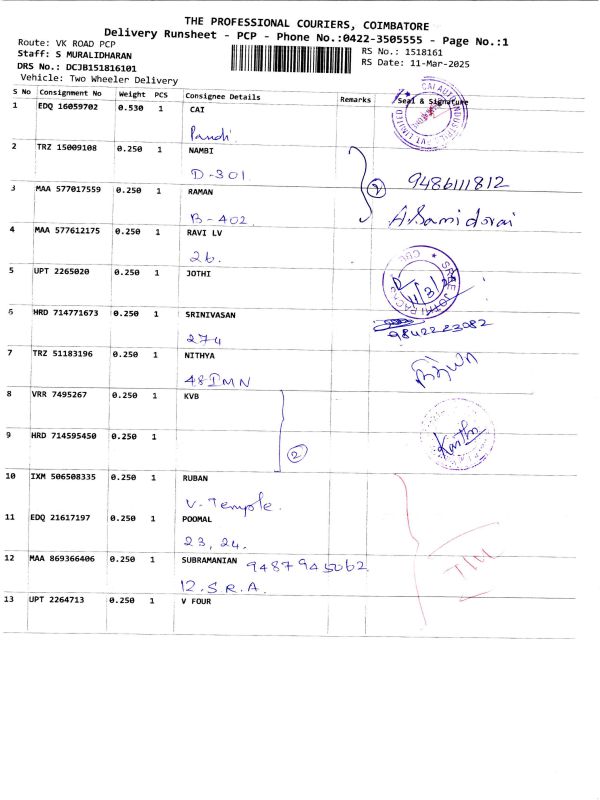 THE PROFESSIONAL COURIERS, COIMBATORE
Delivery Runsheet - PCP - Phone No.:0422-3505555 - Page No.:1
Route: VK ROAD PCP
RS No.: 1518161
Staff: S MURALIDHARAN
RS Date: 11-Mar-2025
DRS No.: DCJB151816101
Vehicle: Two Wheeler Delivery
S No Consignment No Weight PCS Consignee Details Remarks Seal & Signature
1 EDQ 16059702 0.530 1 CAI
Pandi
2 TRZ 15009108 0.250 1 NAMBI
D-301
3 MAA 577017559 0.250 1 RAMAN
2 9486111812
B-402 A.Samidorai
4 MAA 577612175 0.250 1 RAVI LV
26.
5 UPT 2265020 0.250 1 JOTHI
11/3/
6 HRD 714771673 0.250 1 SRINIVASAN
9842223082
274
7 TRZ 51183196 0.250 1 NITHYA
நித்யா
48 IMN
8 VRR 7495267 0.250 1 KVB
Karthi
9 HRD 714595450 0.250 1
2
10 IXM 506508335 0.250 1 RUBAN
V. Temple.
11 EDQ 21617197 0.250 1 POOMAL
23, 24.
12 MAA 869366406 0.250 1 SUBRAMANIAN 9487945062
12. S.R.A.
13 UPT 2264713 0.250 1 V FOUR